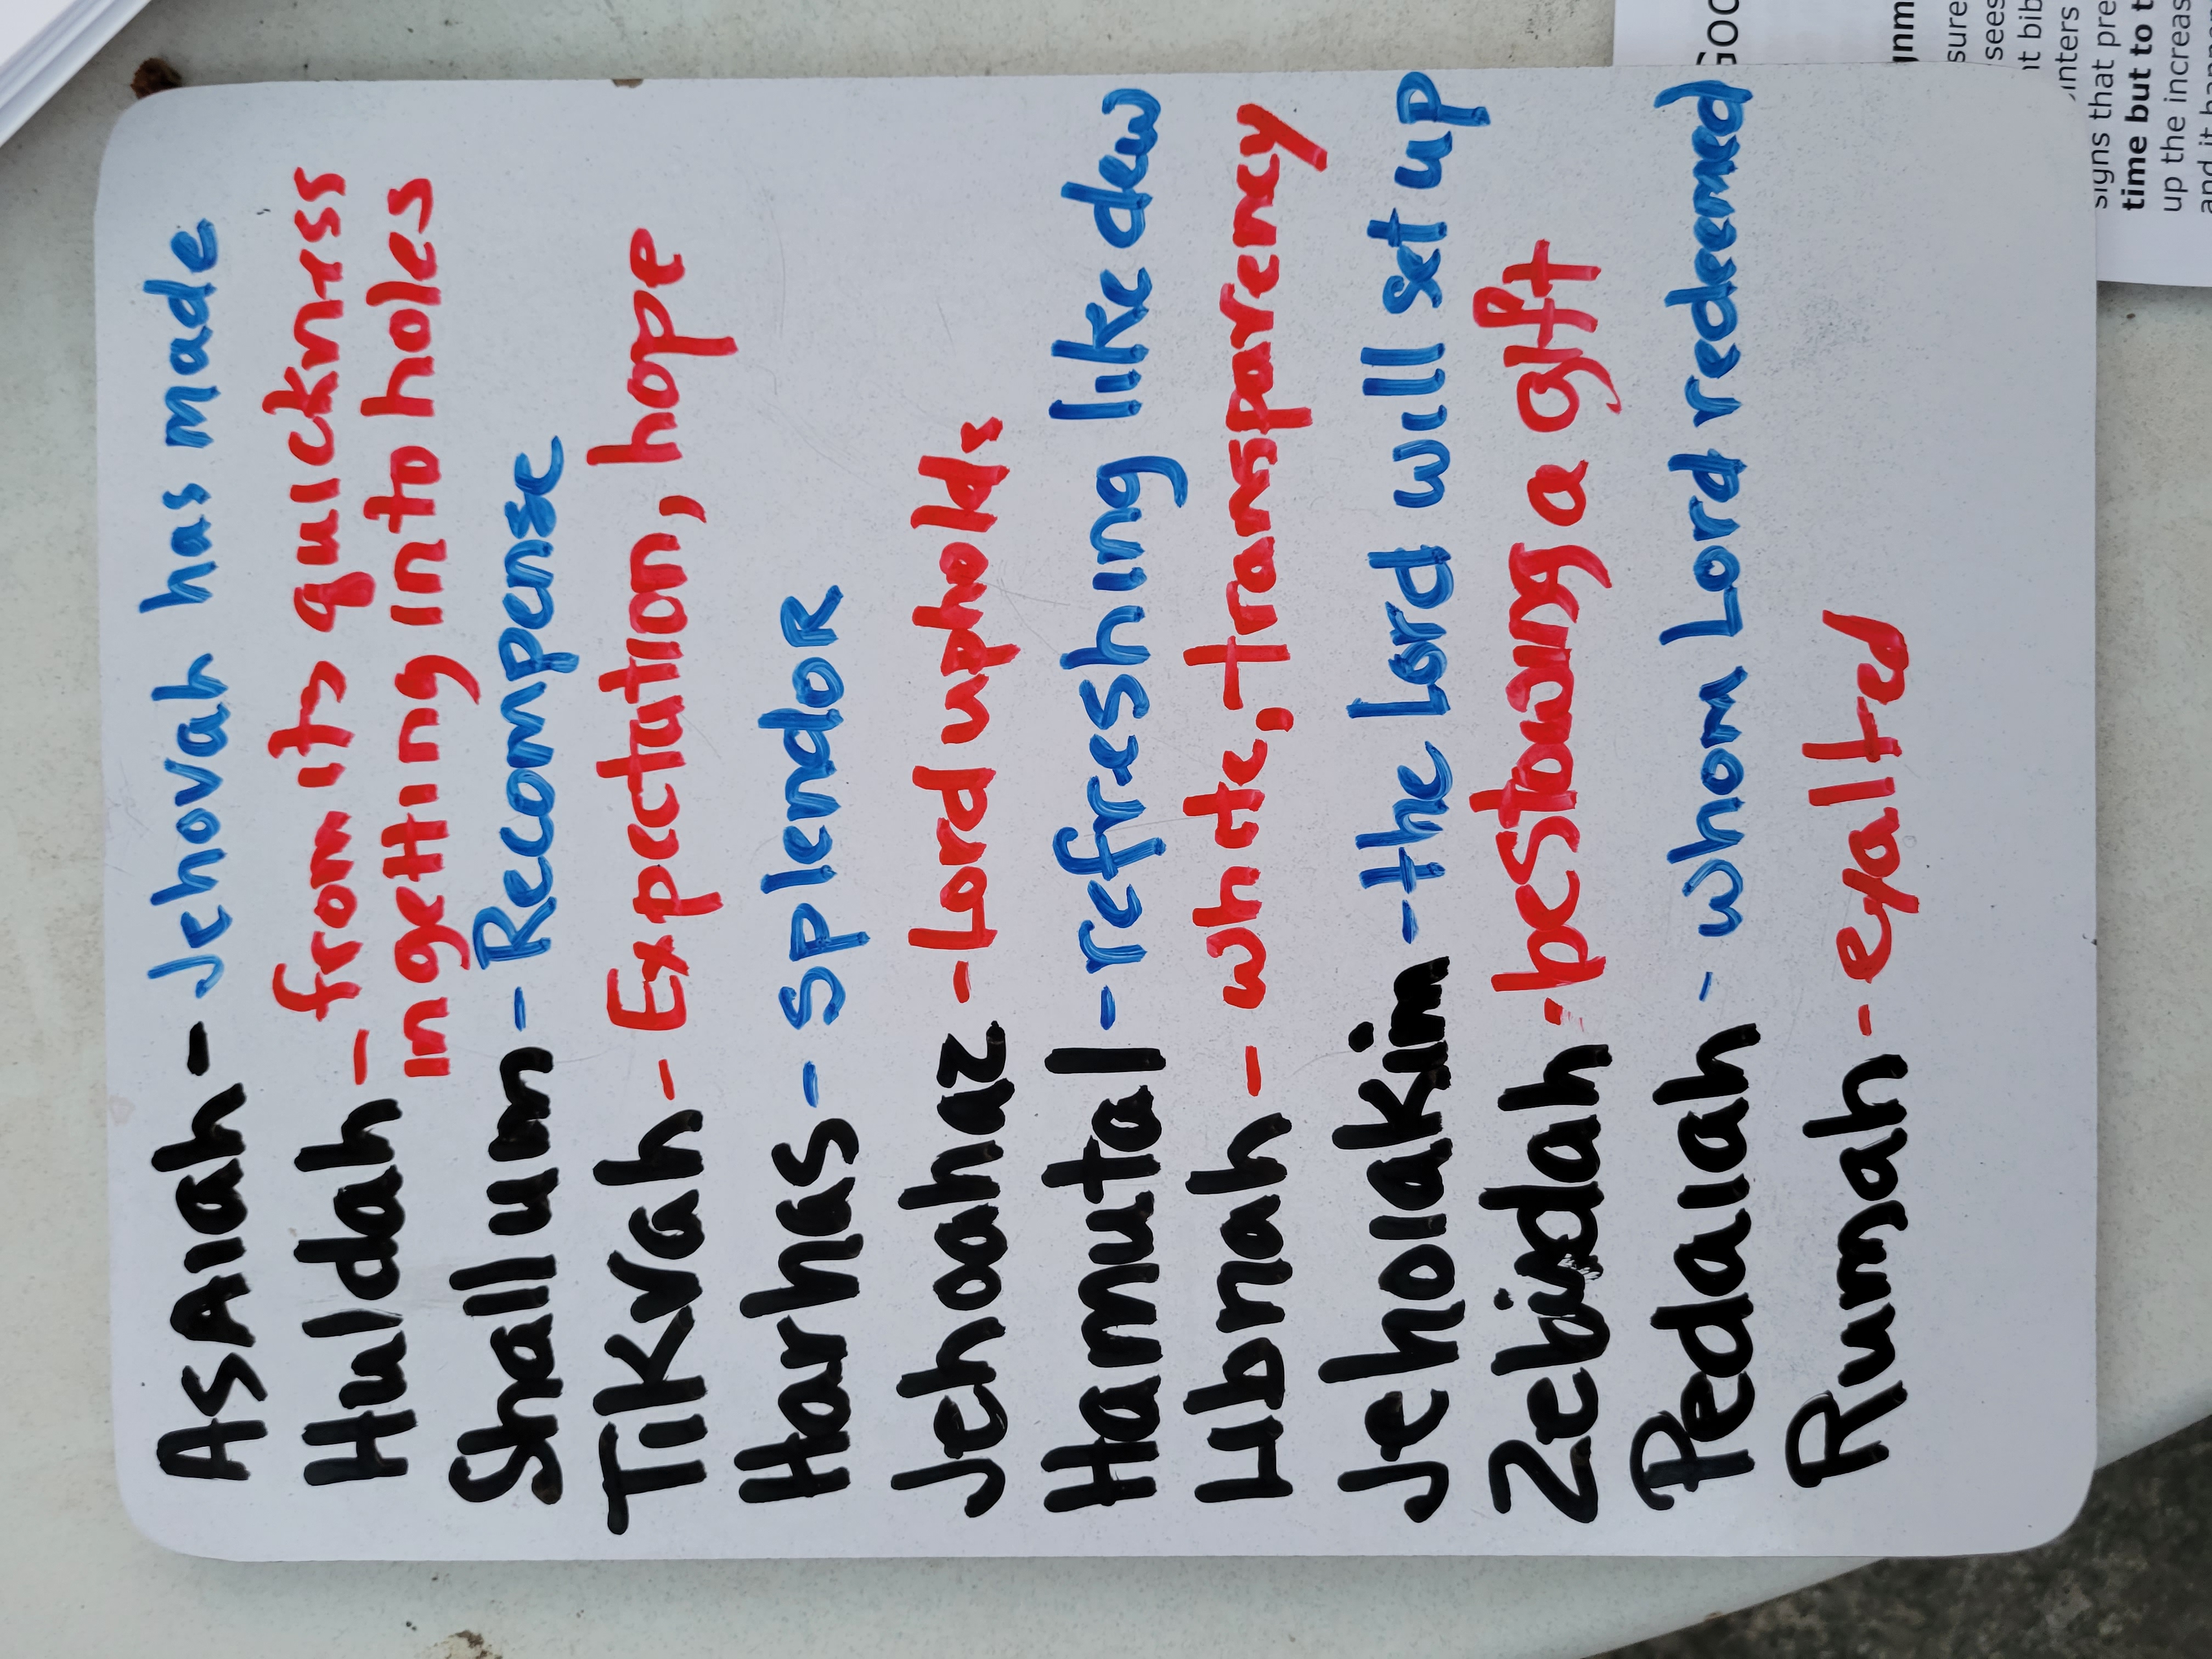 AsAiah - Jehovah has made
Huldah - from its quickness
in getting into holes
Shallum - Recompense
Tikvah - Expectation, hope
Harhas - splendor
Jehoahaz - Lord upholds
Hamutal - refreshing like dew
Libnah - white, transparency
Jehoiakim - the Lord will set up
Zebudah - bestowing a gift
Pedaiah - whom Lord redeemed
Rumah - exalted
signs that pre
time but to t
up the increas